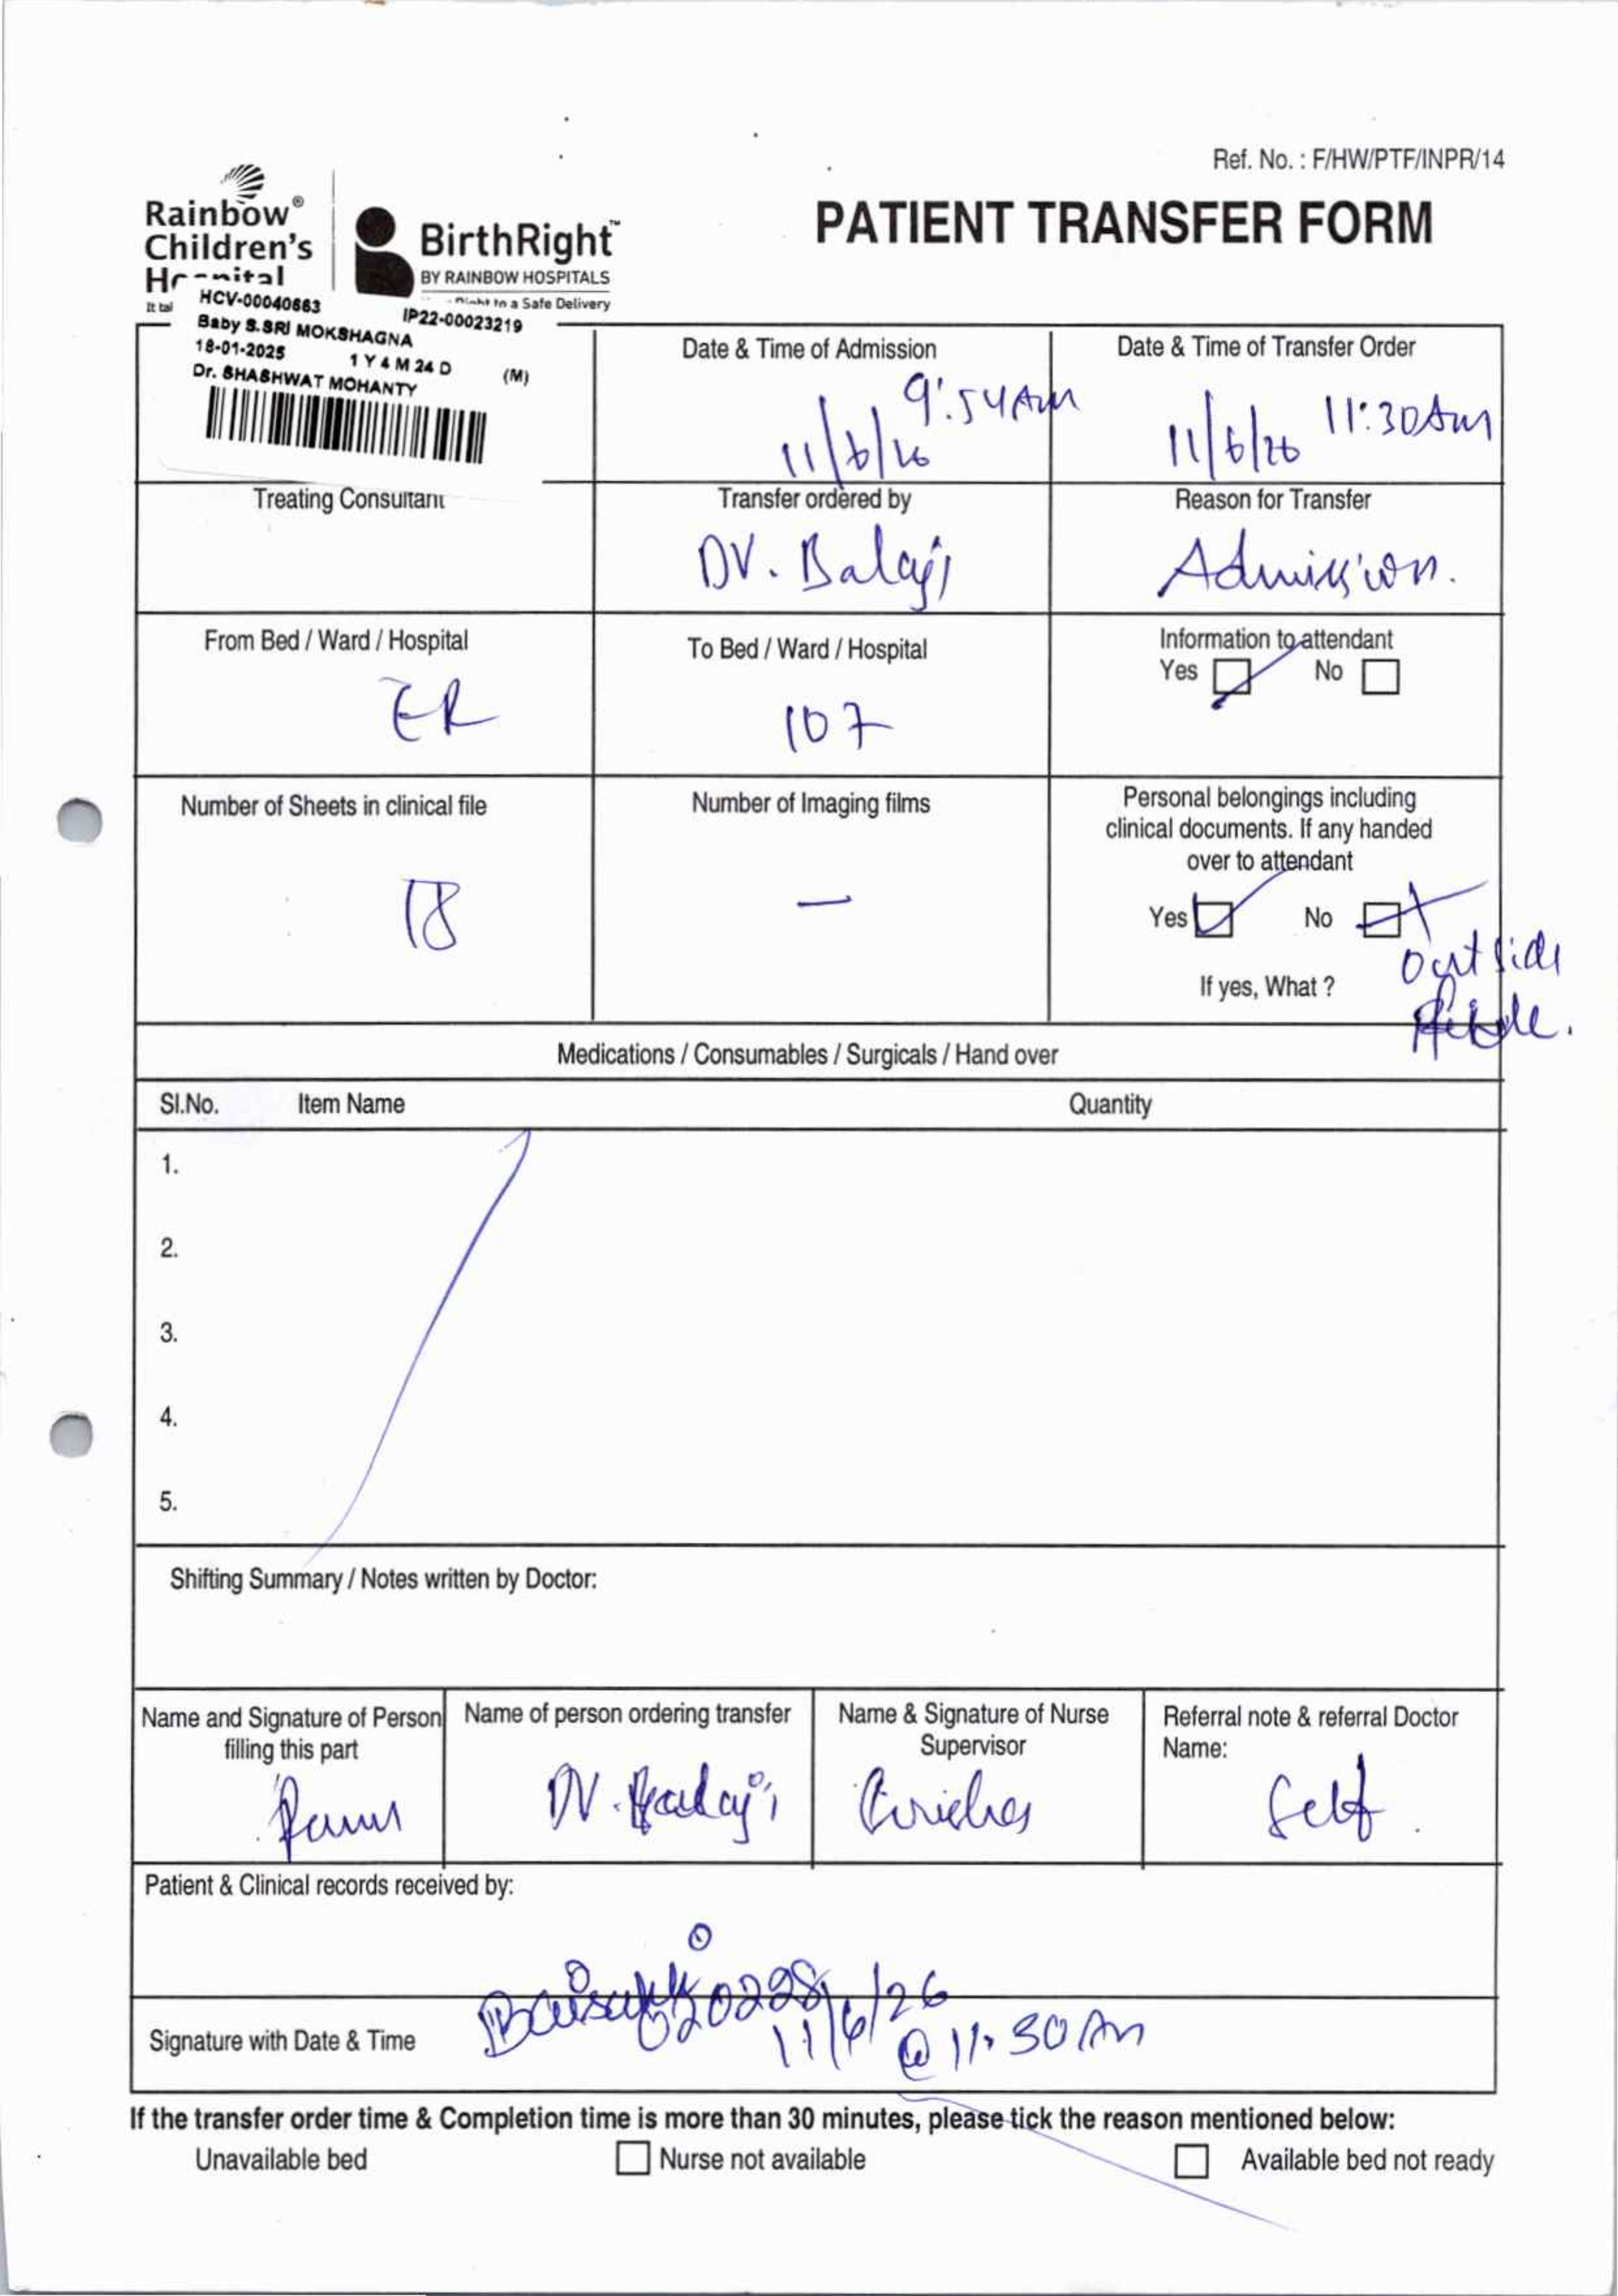 Ref. No. : F/HW/PTF/INPR/14
Rainbow®
Children's
Hospital
It tal
BirthRight™
BY RAINBOW HOSPITALS
Right to a Safe Delivery
PATIENT TRANSFER FORM
HCV-00040663
IP22-00023219
Baby S.SRI MOKSHAGNA
18-01-2025 1 Y 4 M 24 D (M)
Dr. SHASHWAT MOHANTY
Date & Time of Admission
9:54 Am
11/6/26
Date & Time of Transfer Order
11/6/26 11:30 Am
Treating Consultant
Transfer ordered by
DV. Balaji
Reason for Transfer
Admission.
From Bed / Ward / Hospital
ER
To Bed / Ward / Hospital
107
Information to attendant
Yes No
Number of Sheets in clinical file
18
Number of Imaging films
—
Personal belongings including
clinical documents. If any handed
over to attendant
Yes No
If yes, What ?
outside
Medications / Consumables / Surgicals / Hand over
Sl.No. Item Name Quantity
1.
2.
3.
4.
5.
Shifting Summary / Notes written by Doctor:
Name and Signature of Person
filling this part
Name of person ordering transfer
DV. Balaji
Name & Signature of Nurse
Supervisor
Referral note & referral Doctor
Name:
Self.
Patient & Clinical records received by:
Signature with Date & Time
11/6/26
@ 11:30 Am
If the transfer order time & Completion time is more than 30 minutes, please tick the reason mentioned below:
Unavailable bed Nurse not available Available bed not ready